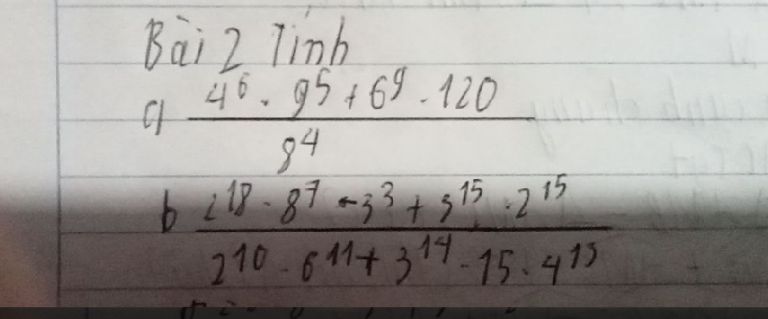 Bài 2 Tính
a) \frac{4^6 \cdot 9^5 + 6^9 \cdot 120}{8^4}
b \frac{2^{18} \cdot 8^7 \cdot 3^3 + 3^{15} \cdot 2^{15}}{2^{10} \cdot 6^{11} + 3^{14} \cdot 15 \cdot 4^{13}}